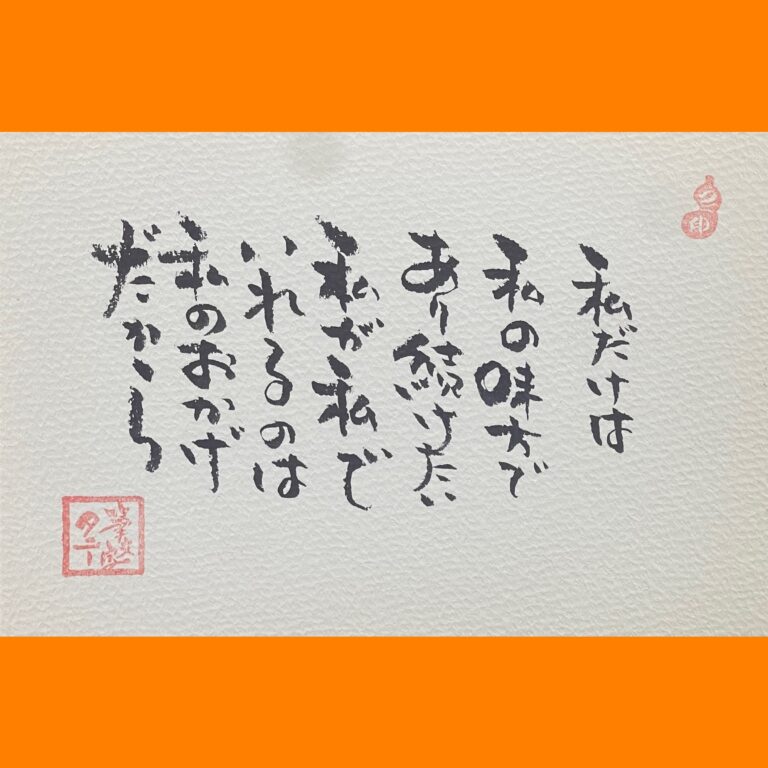 私だけは
私の味方で
あり続けたい
私が私で
いれるのは
私のおかげ
だから
印